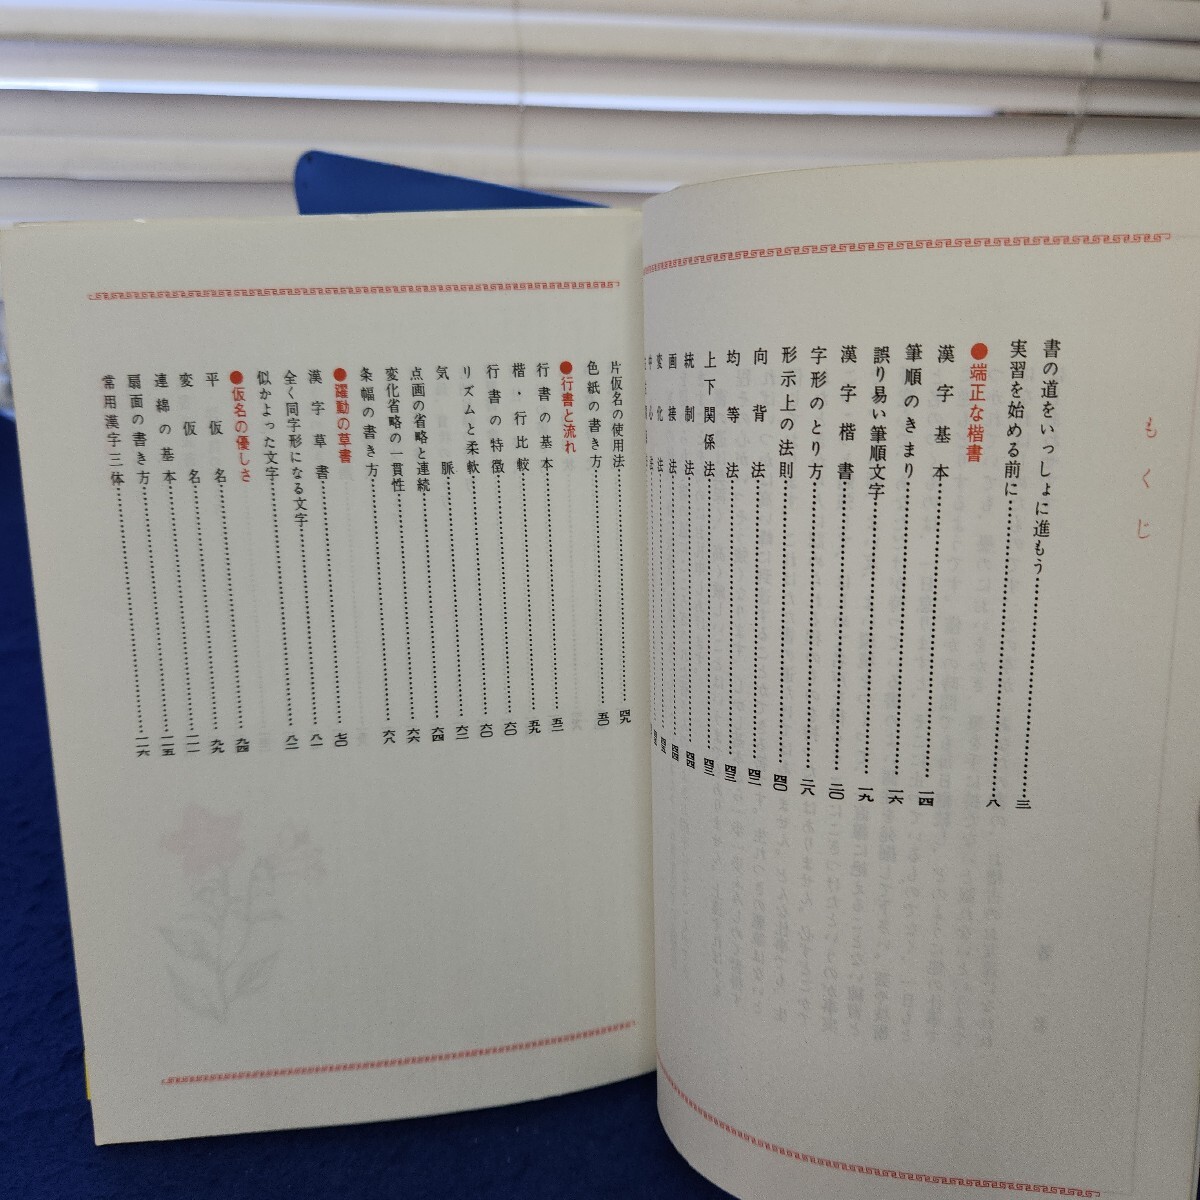 もくじ
書の道をいっしょに進もう……三
実習を始める前に……八
●端正な楷書
漢字基本……一四
筆順のきまり……一六
誤り易い筆順文字……一九
漢字楷書……二〇
字形のとり方……二八
形示上の法則……四〇
向背法……四二
均等法……四三
上下関係法……四三
統制法……四四
画接法……四四
変化法……四五
片仮名の使用法……四九
色紙の書き方……五〇
●行書と流れ
行書の基本……五二
楷・行比較……五九
行書の特徴……六〇
リズムと柔軟……六〇
気脈……六二
点画の省略と連続……六四
変化省略の一貫性……六六
条幅の書き方……六八
●躍動の草書
漢字草書……七〇
全く同字形になる文字……八一
似かよった文字……八二
●仮名の優しさ
平仮名……九四
変仮名……九九
連綿の基本……一一一
扇面の書き方……一一五
常用漢字三体……一一六